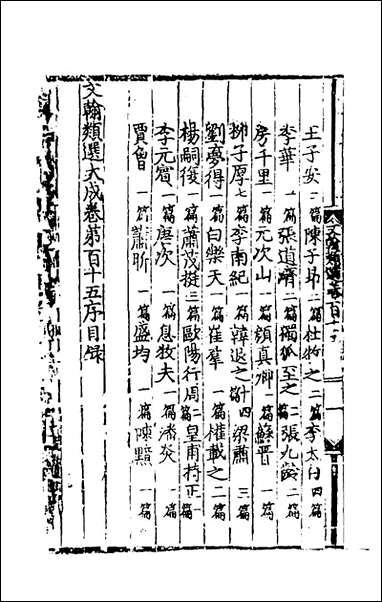 王子安二篇 陳子昂二篇 杜牧之二篇 李太白四篇
李華一篇 張道濟二篇 獨孤至之二篇 張九齡二篇
房千里一篇 元次山一篇 顔真卿一篇 蘇晋一篇
栁子厚七篇 李南紀一篇 韓退之十四篇 梁肅三篇
劉夢得一篇 白樂天一篇 崔羣一篇 權載之二篇
楊嗣復一篇 蕭茂挺三篇 歐陽行周二篇 皇甫持正一篇
李元賔一篇 唐次一篇 息牧夫一篇 潘炎一篇
賈曾一篇 蕭昕一篇 盛均一篇 陳黯一篇
文翰類選大成卷第百十五序目録